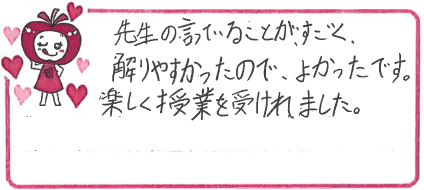 先生の言っていることが、すごく、
解りやすかったので、よかったです。
楽しく授業を受けれました。